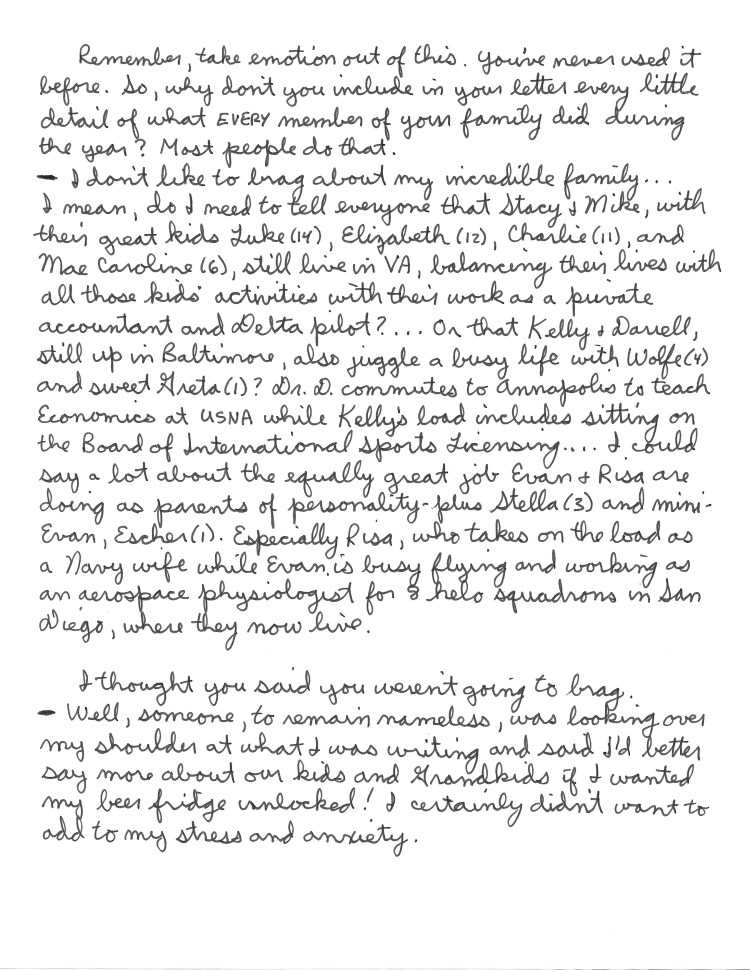 Remember, take emotion out of this. You've never used it
before. So, why don't you include in your letter every little
detail of what EVERY member of your family did during
the year? Most people do that.
– I don't like to brag about my incredible family...
I mean, do I need to tell everyone that Stacy & Mike, with
their great kids Luke (14), Elizabeth (12), Charlie (11), and
Mae Caroline (6), still live in VA, balancing their lives with
all those kids' activities with their work as a private
accountant and Delta pilot?... Or that Kelly & Darrell,
still up in Baltimore, also juggle a busy life with Wolfe (4)
and sweet Greta (1)? Dr. D. commutes to Annapolis to teach
Economics at USNA while Kelly's load includes sitting on
the Board of International Sports Licensing.... I could
say a lot about the equally great job Evan & Risa are
doing as parents of personality-plus Stella (3) and mini-
Evan, Escher (1). Especially Risa, who takes on the load as
a Navy wife while Evan is busy flying and working as
an aerospace physiologist for 8 helo squadrons in San
Diego, where they now live.
I thought you said you weren't going to brag.
– Well, someone, to remain nameless, was looking over
my shoulder at what I was writing and said I'd better
say more about our kids and Grandkids if I wanted
my beer fridge unlocked! I certainly didn't want to
add to my stress and anxiety.